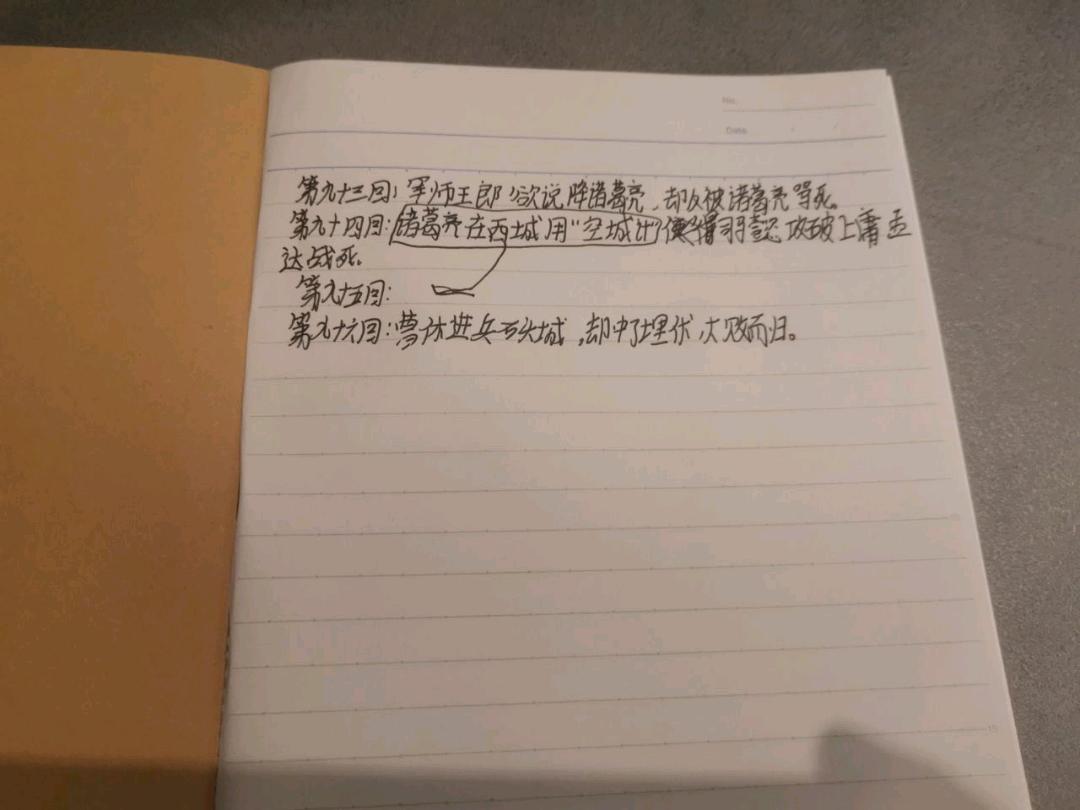 No.
Date
第九十三回：军师王郎欲说降诸葛亮，却反被诸葛亮骂死。
第九十四回：诸葛亮在西城用"空城计"使得司马懿攻破上庸孟
达战死。
第九十五回：
第九十六回：曹休进兵石头城，却中了埋伏，大败而归。
15